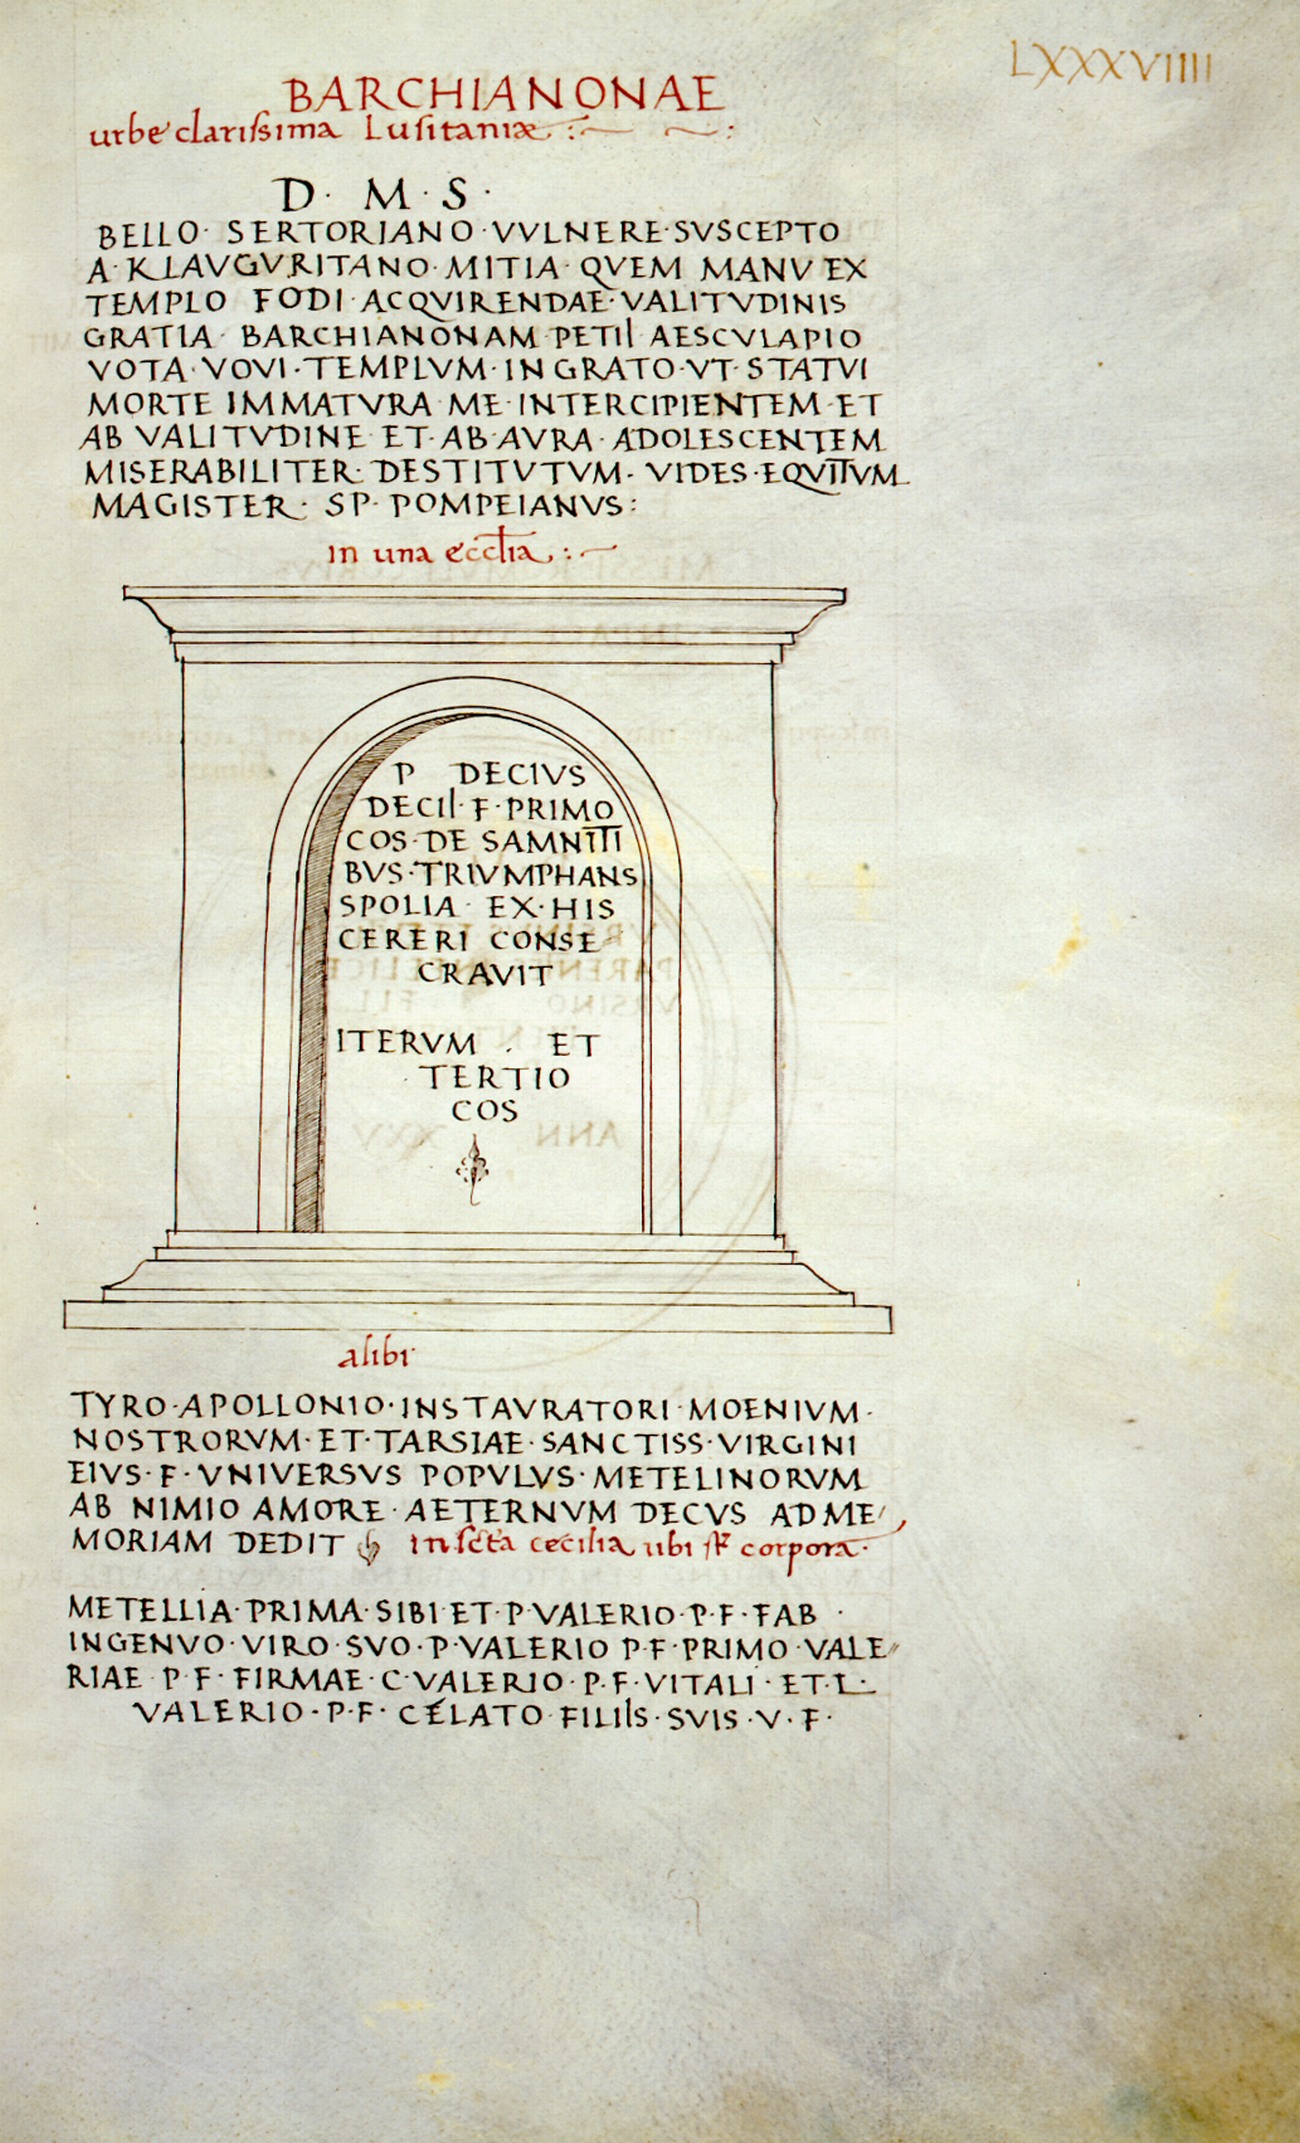 LXXXVIIII
BARCHIANONAE
urbe clarissima Lusitaniæ
D · M · S ·
BELLO · SERTORIANO · VVLNERE · SVSCEPTO
A · KLAVGVRITANO · MITIA · QVEM MANV EX
TEMPLO FODI · ACQVIRENDAE · VALITVDINIS
GRATIA · BARCHIANONAM · PETII AESCVLAPIO
VOTA · VOVI · TEMPLVM · INGRATO · VT · STATVI
MORTE IMMATVRA · ME · INTERCIPIENTEM · ET
AB VALITVDINE · ET · AB · AVRA · ADOLESCENTEM
MISERABILITER · DESTITVTVM · VIDES · EQVITVM
MAGISTER · SP · POMPEIANVS :
in una eccl̄ia
P DECIVS
DECII · F · PRIMO
COS · DE SAMNITI
BVS · TRIVMPHANS
SPOLIA · EX · HIS
CERERI CONSE
CRAVIT
ITERVM · ET
TERTIO
COS
alibi
TYRO · APOLLONIO · INSTAVRATORI · MOENIVM ·
NOSTRORVM · ET · TARSIAE · SANCTISS · VIRGINI
EIVS · F · VNIVERSVS POPVLVS · METELINORVM
AB NIMIO AMORE · AETERNVM DECVS AD ME
MORIAM DEDIT in scta cecilia ubi st corpora ·
METELLIA · PRIMA · SIBI · ET · P · VALERIO · P · F · FAB ·
INGENVO · VIRO · SVO · P · VALERIO P · F · PRIMO · VALE
RIAE · P · F · FIRMAE · C · VALERIO · P · F · VITALI · ET · L ·
VALERIO · P · F · CELATO · FILIIS · SVIS · V · F ·